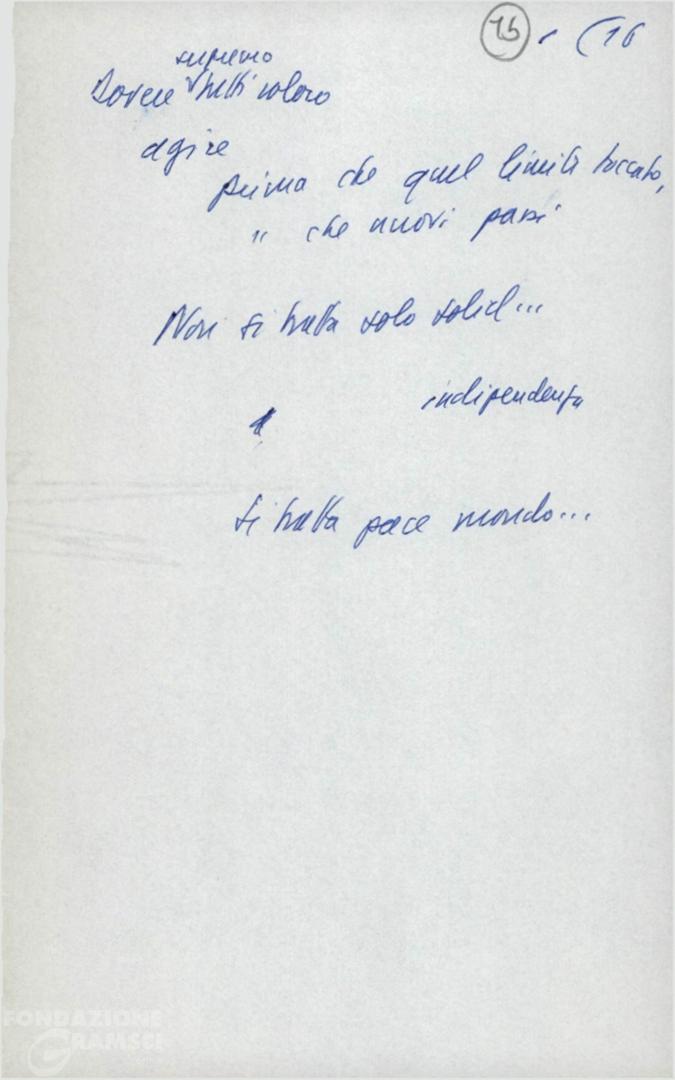 15 (16
supremo
Dovere tutti coloro
agire
prima che quel limite toccato,
" che nuovi passi
Non si tratta solo solid...
indipendenza
Si tratta pace mondo...
FONDAZIONE
GRAMSCI